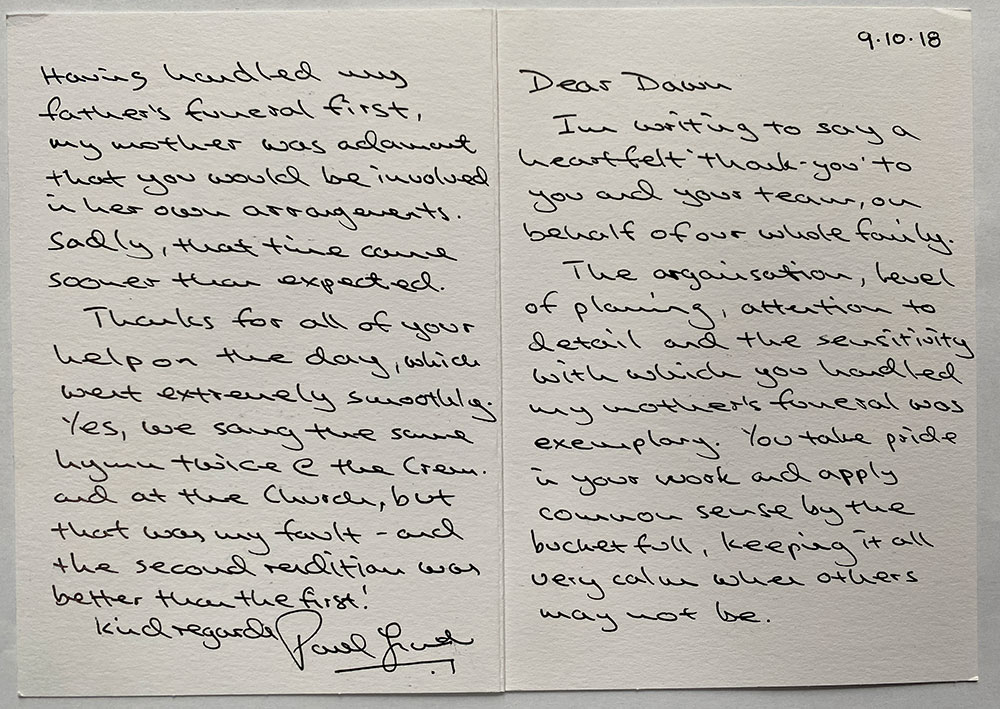 9.10.18
Dear Dawn
I'm writing to say a
heartfelt 'thank-you' to
you and your team, on
behalf of our whole family.
The organisation, level
of planning, attention to
detail and the sensitivity
with which you handled
my mother's funeral was
exemplary. You take pride
in your work and apply
common sense by the
bucket full, keeping it all
very calm when others
may not be.
Having handled my
father's funeral first,
my mother was adamant
that you would be involved
in her own arrangements.
Sadly, that time came
sooner than expected.
Thanks for all of your
help on the day, which
went extremely smoothly.
Yes, we sang the same
hymn twice @ the Crem.
and at the Church, but
that was my fault - and
the second rendition was
better than the first!
Kind regards Paul